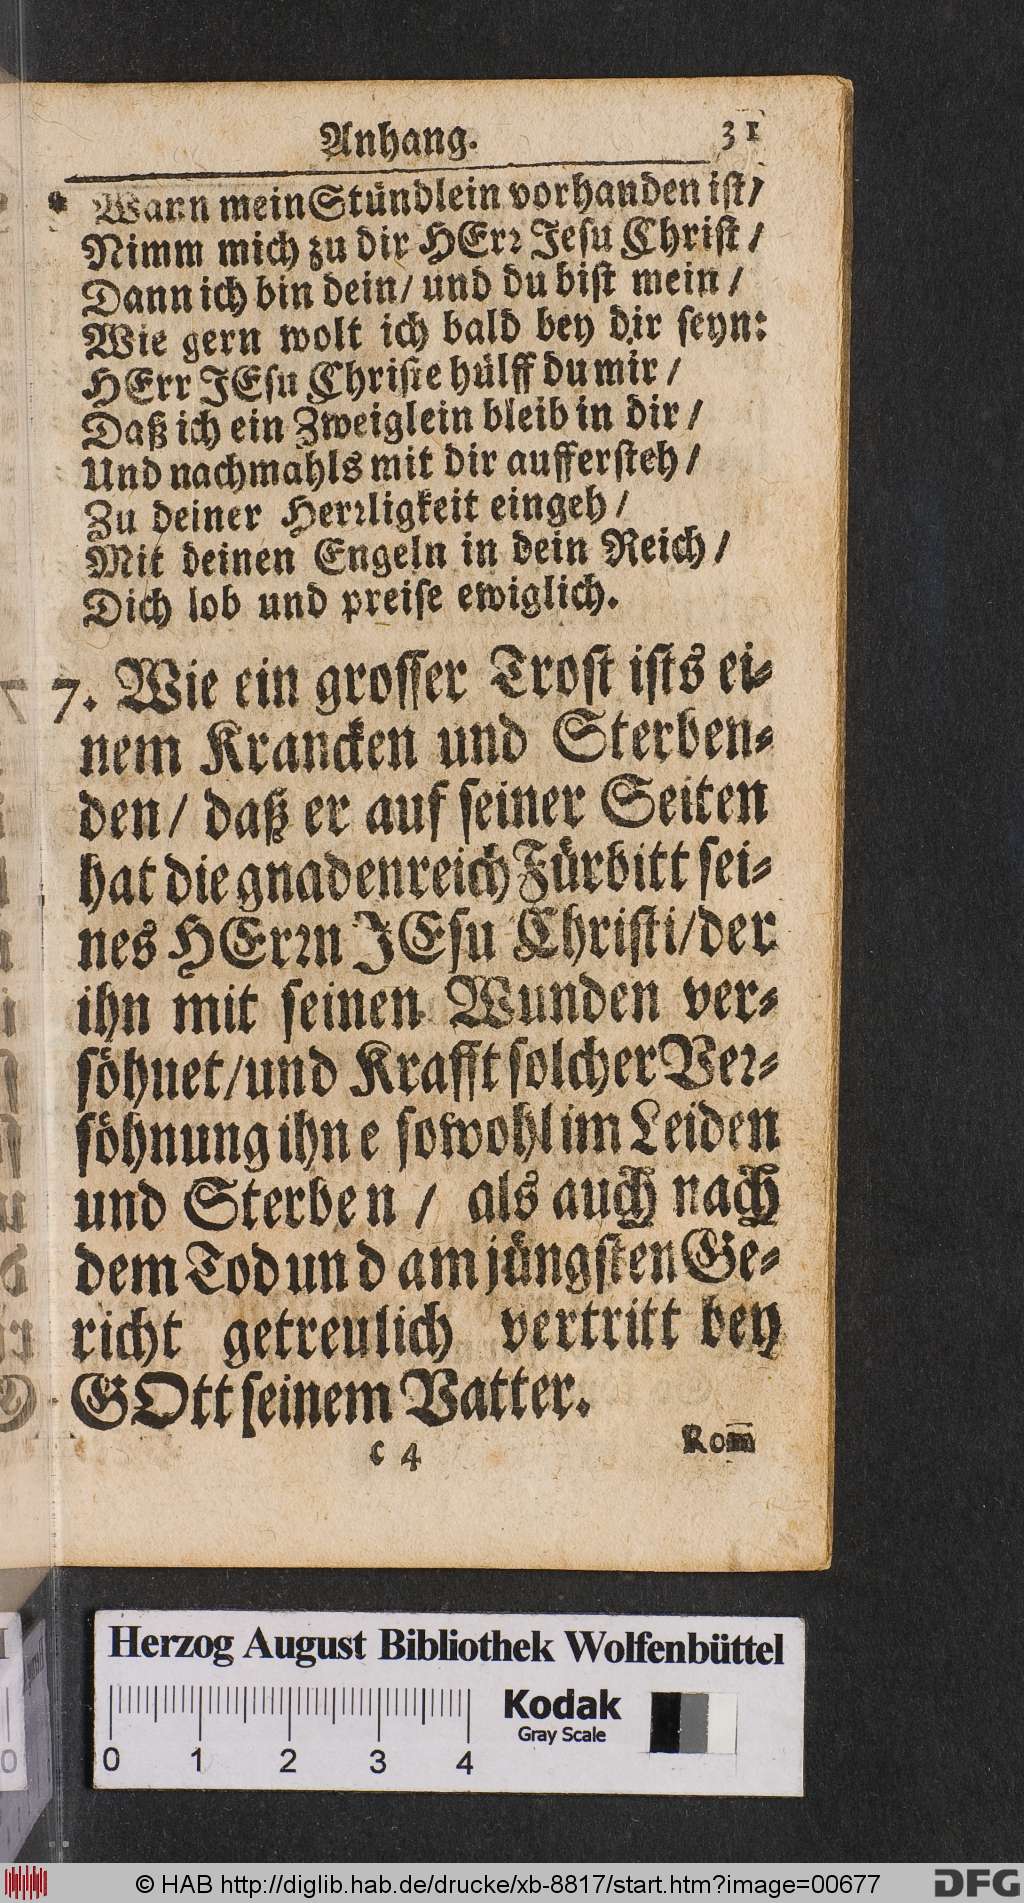 Anhang. 31
* Wann mein Stündlein vorhanden ist/
Nimm mich zu dir HErꝛ Jesu Christ /
Dann ich bin dein/ und du bist mein /
Wie gern wolt ich bald bey dir seyn:
HErr JEsu Christe hülff du mir /
Daß ich ein Zweiglein bleib in dir /
Und nachmahls mit dir aufferstehꝛ /
Zu deiner Herꝛligkeit eingeh /
Mit deinen Engeln in dein Reich /
Dich lob und preise ewiglich.
7. Wie ein grosser Trost ists ei-
nem Krancken und Sterben-
den / daß er auf seiner Seiten
hat die gnadenreich Fürbitt sei-
nes HErꝛn JEsu Christi/der
ihn mit seinen Wunden ver-
söhnet/und Krafft solcher Veꝛ-
söhnung ihne sowohl im Leiden
und Sterben / als auch nach
dem Tod und am jüngsten Ge-
richt getreulich vertritt bey
GOtt seinem Vatter.
c 4 Rom̄
Herzog August Bibliothek Wolfenbüttel
Kodak
Gray Scale
0 1 2 3 4
© HAB http://diglib.hab.de/drucke/xb-8817/start.htm?image=00677
DFG